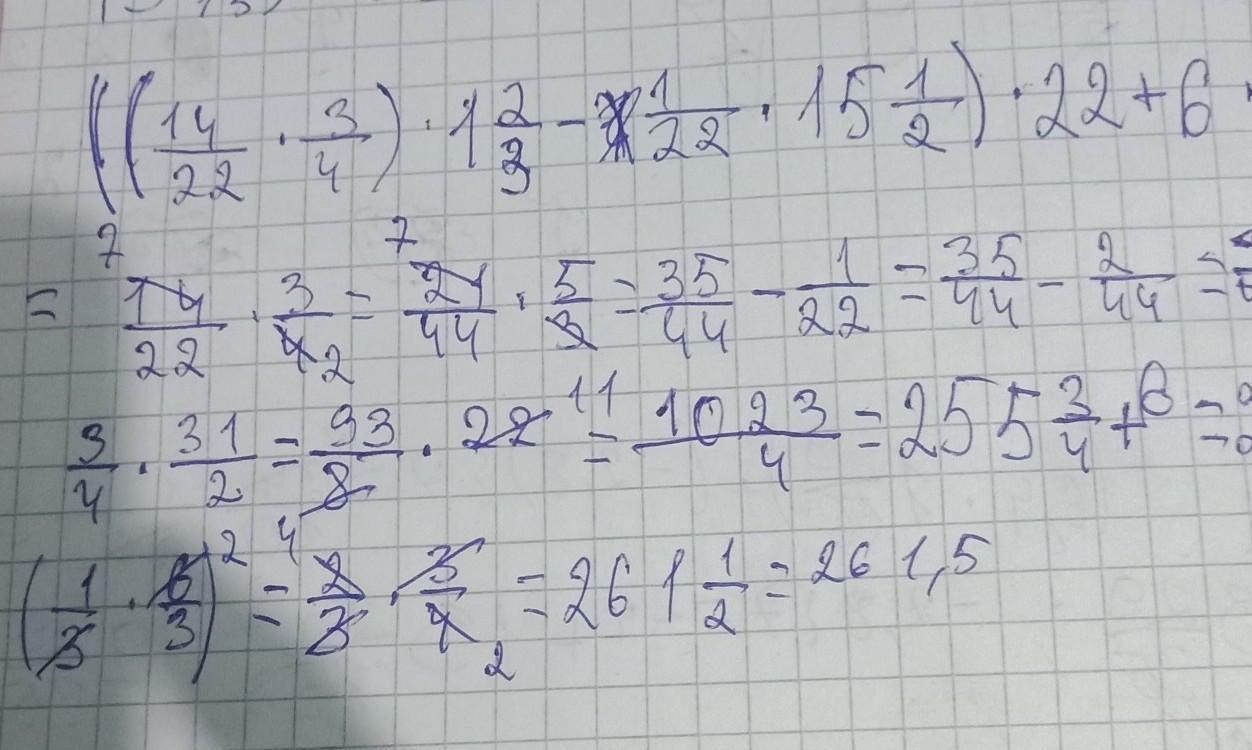 ((14/22 · 3/4) · 1 2/3 - 1/22 · 15 1/2) · 22 + 6
= 14/22 · 3/4 = 21/44 · 5/3 = 35/44 - 1/22 = 35/44 - 2/44 =
3/4 · 31/2 = 93/8 · 22 = 1023/4 = 255 3/4 + 6 =
(1/3 · 6/3) = 2/3 · 3/4 = 261 1/2 = 261,5